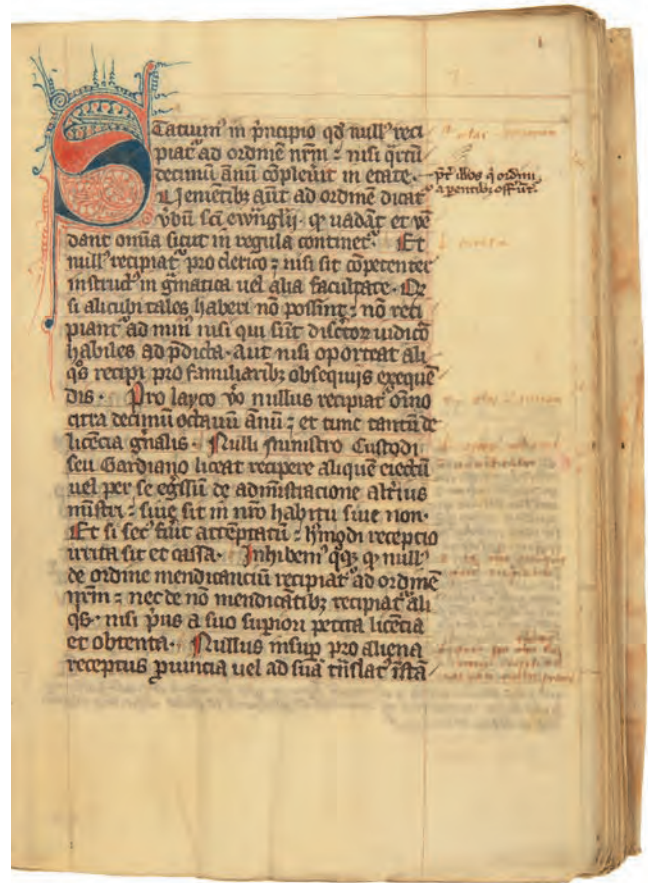 Statuim⁹ in p̄ncipio qd̄ null⁹ reci
piat᷑ ad ordinē nr̄m : nisi q̄rtū
decimū ānū cōpleūit in etate.
p̄t̄ illos q̄ ordini
a parentibꝫ offūt᷑.
Venientibꝫ aūt ad ordinē dicat᷑
v̄bū sc̄i ewn̄glij. qꝫ uadāt et vē
dant om̄ia sicut in regula continet᷑. Et
null⁹ recipiat᷑ pro clerico : nisi sit cōpetenter
instruct⁹ in gͣmatica uel alia facultate. Qꝫ
si alicubi tales haberi nō possint : nō reci
piant᷑ ad min⁹ nisi qui sūt discꝛetoꝝ iudicō
habiles ad p̄dicta. aut nisi oporteat ali
qōs recipi pro familiaribꝫ obsequiis exequē
dis. Pro layco v̄o nullus recipiat᷑ om̄o
citra decimū octauū ānū : et tunc tantū de
licēcia gn̄alis. Nulli ministro Custodi
seu Gardiano liceat recipere aliquē eiectū
uel per se egr̄ssū de adm̄istracione alt̄ius
mīstri : siue sit in nr̄o habitu siue non.
Et si sec⁹ fūit attēptatū : h⁹modi receptio
irrita sit et cassa. Inhibem⁹ qꝫqꝫ qꝫ null⁹
de ordine mendicanciū recipiat᷑ ad ordinē
nr̄m : nec de nō mendicātibꝫ recipiat᷑ ali
qs. nisi p̄us a suo sup̄iori petita licēcia
et obtenta. Nullus insup̄ pro aliena
receptus ꝓuincia uel ad suā tn̄slat᷑ īstā